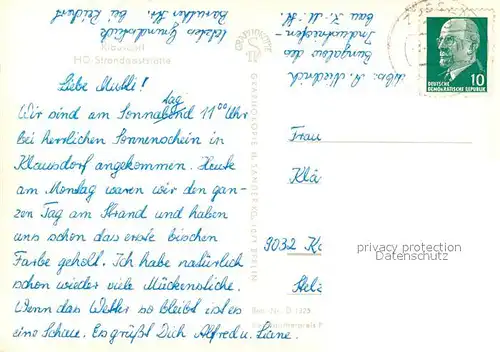 Klausdorf
HO-Strandgaststätte
Liebe Mutti!
Wir sind am Sonnabend tag 11 00 Uhr
bei herrlichen Sonnenschein in
Klausdorf angekommen. Heute
am Montag waren wir den gan-
zen Tag am Strand und haben
uns schon das erste bischen
Farbe geholt. Ich habe natürlich
schon wieder viele Mückenstiche.
Wenn das Wetter so bleibt ist es
eine Schau. Es grüßt Dich Alfred u. Liane.
Abs. A. Niedrich
Bungalow des
bau K.-M.-St.
letztes Grundstück
bei Reichert
GRAPHOKOPIE H. SANDER KG, 1071 BERLIN
DEUTSCHE
DEMOKRATISCHE REPUBLIK
10
Frau
Klä
9032 K
privacy protection
Stelz
Best.-Nr. D 1325